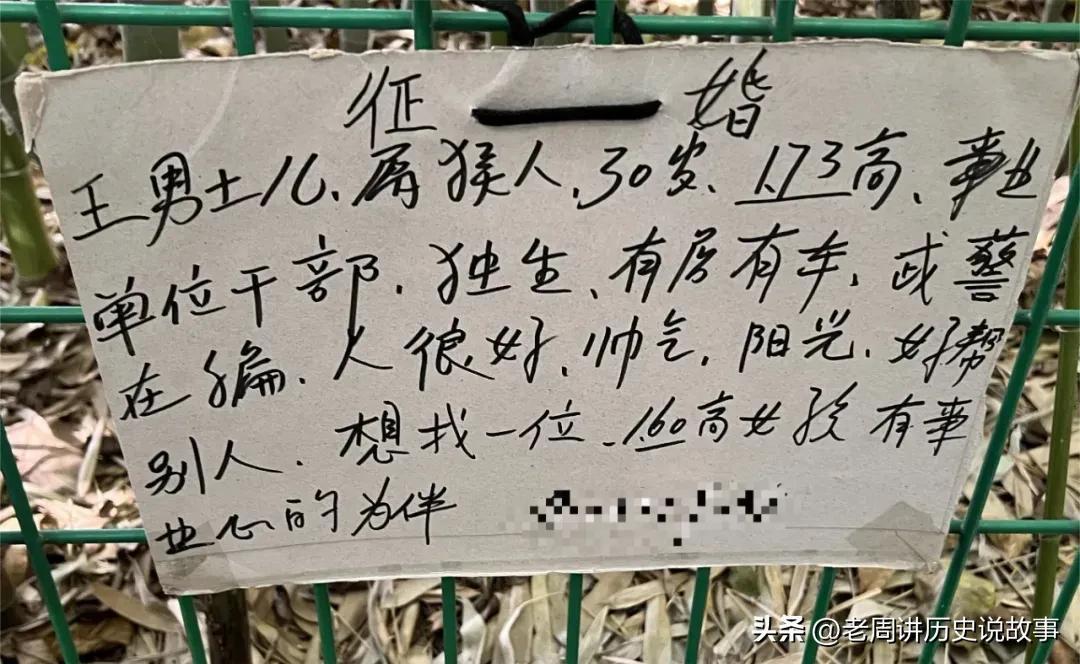 征 婚
王男士儿、属猴人、30岁、1.73高、事业
单位干部、独生、有房有车、武警
在编、人很好、帅气、阳光、好帮
别人、想找一位、1.60高女孩有事
业心的为伴
头条 @老周讲历史说故事